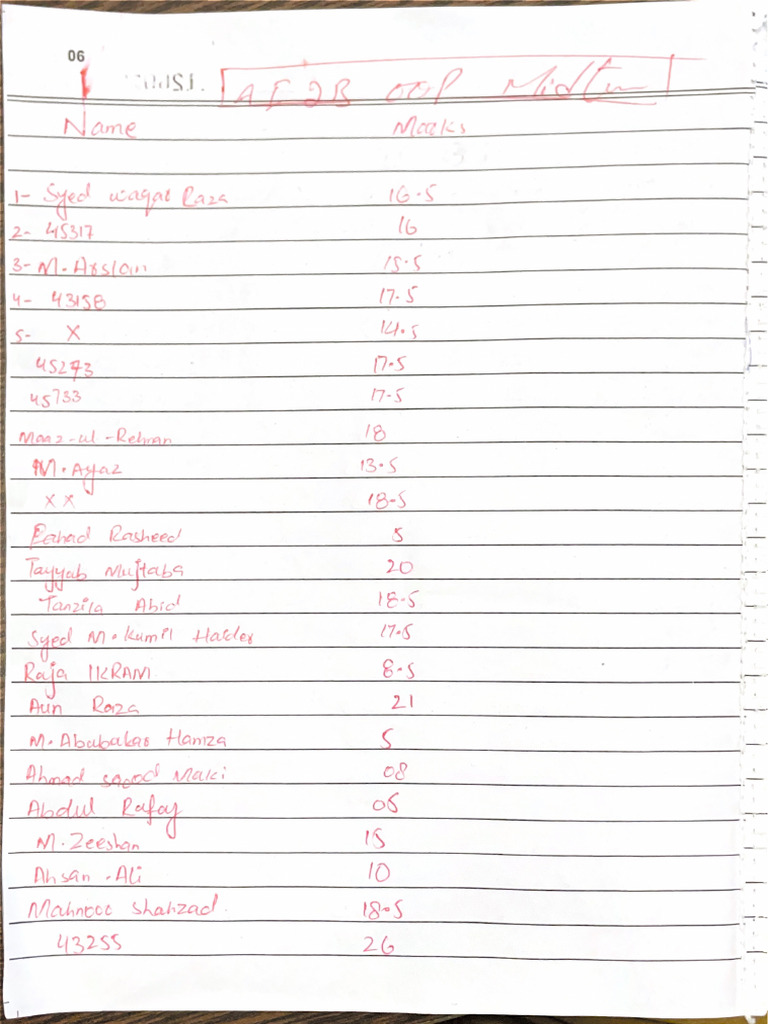 06
AI 2B OOP Midterm
Name Marks
1- Syed waqar Raza 16.5
2- 45317 16
3- M. Arslan 15.5
4- 43158 17.5
5- X 14.5
45273 17.5
45733 17.5
Maaz-ul-Rehman 18
M. Ayaz 13.5
X X 18.5
Fahad Rasheed 5
Tayyab Mujtaba 20
Tanzila Abid 18.5
Syed M. Kumil Haider 17.5
Raja IKRAM 8.5
Aun Raza 21
M. Ababakar Hamza 5
Ahmad saood Maki 08
Abdul Rafay 05
M. Zeeshan 15
Ahsan .Ali 10
Mahnoor Shahzad 18.5
43255 26